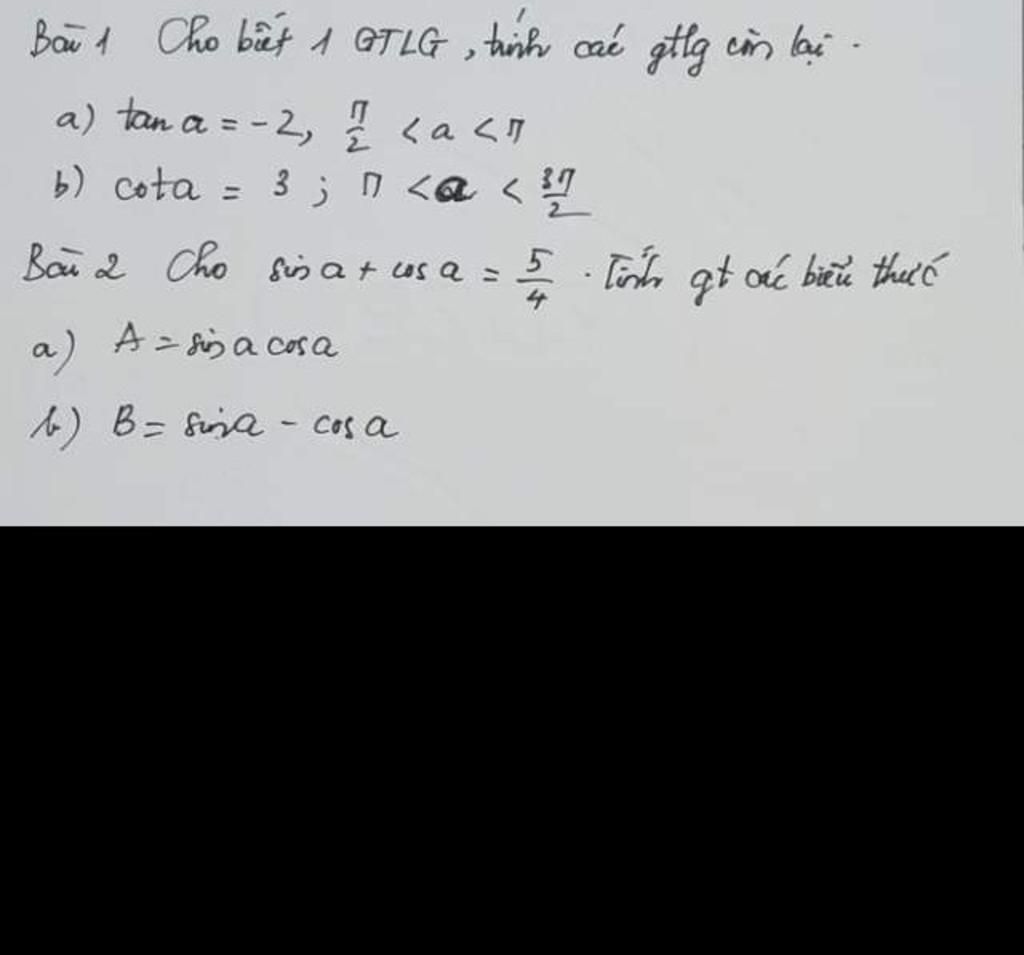 Bài 1 Cho biết 1 GTLG, tính các gtlg còn lại.
a) tan a = -2, π/2 < a < π
b) cota = 3 ; π < a < 3π/2
Bài 2 Cho sin a + cos a = 5/4 . Tính gt các biểu thức
a) A = sin a cos a
b) B = sin a - cos a